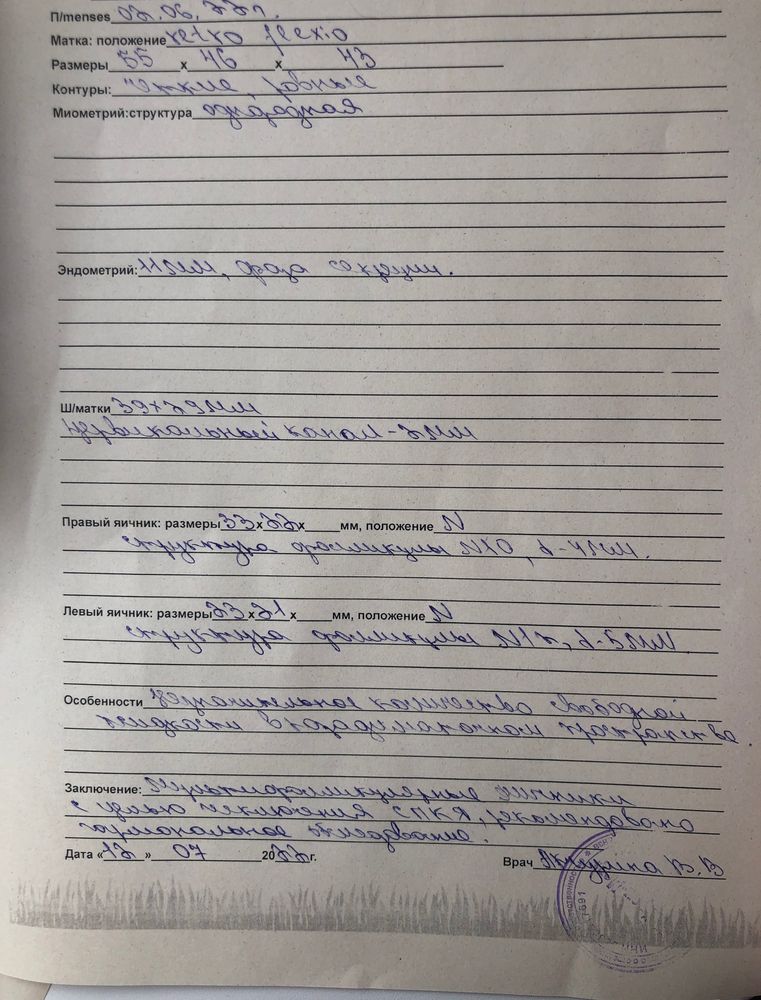 П/menses 02.06.22г.
Матка: положение retro flexio
Размеры 55 х 46 х 43
Контуры: четкие, ровные
Миометрий:структура однородная
Эндометрий: 11 мм, фаза секреции.
Ш/матки 39х29мм
цервикальный канал - 2мм
Правый яичник: размеры 33 х 22 х мм, положение N
структура фолликулы N10, d-4мм.
Левый яичник: размеры 33 х 21 х мм, положение N
структура фолликулы N12, d-5мм.
Особенности незначительное количество свободной
жидкости в позадиматочном пространстве.
Заключение: Мультифолликулярные яичники
с целью исключения СПКЯ, рекомендовано
гормональное обследование.
Дата «12» 07 2022г.
Врач В.В